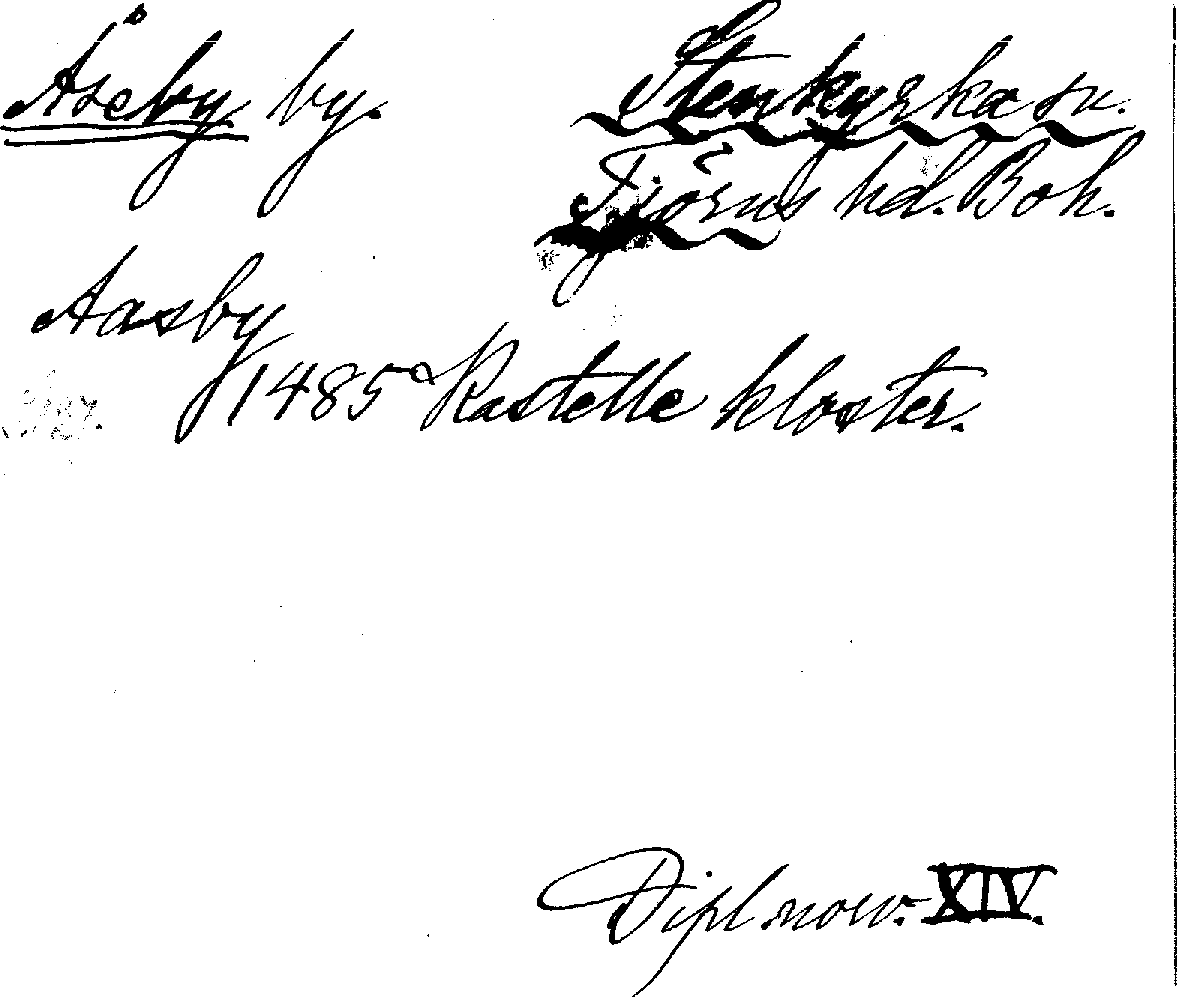 Åseby by.
Stenkyrka sn.
Tjörns hd. Boh.
Aasby
1485 Kastelle kloster.
Dipl. norv. XIV.